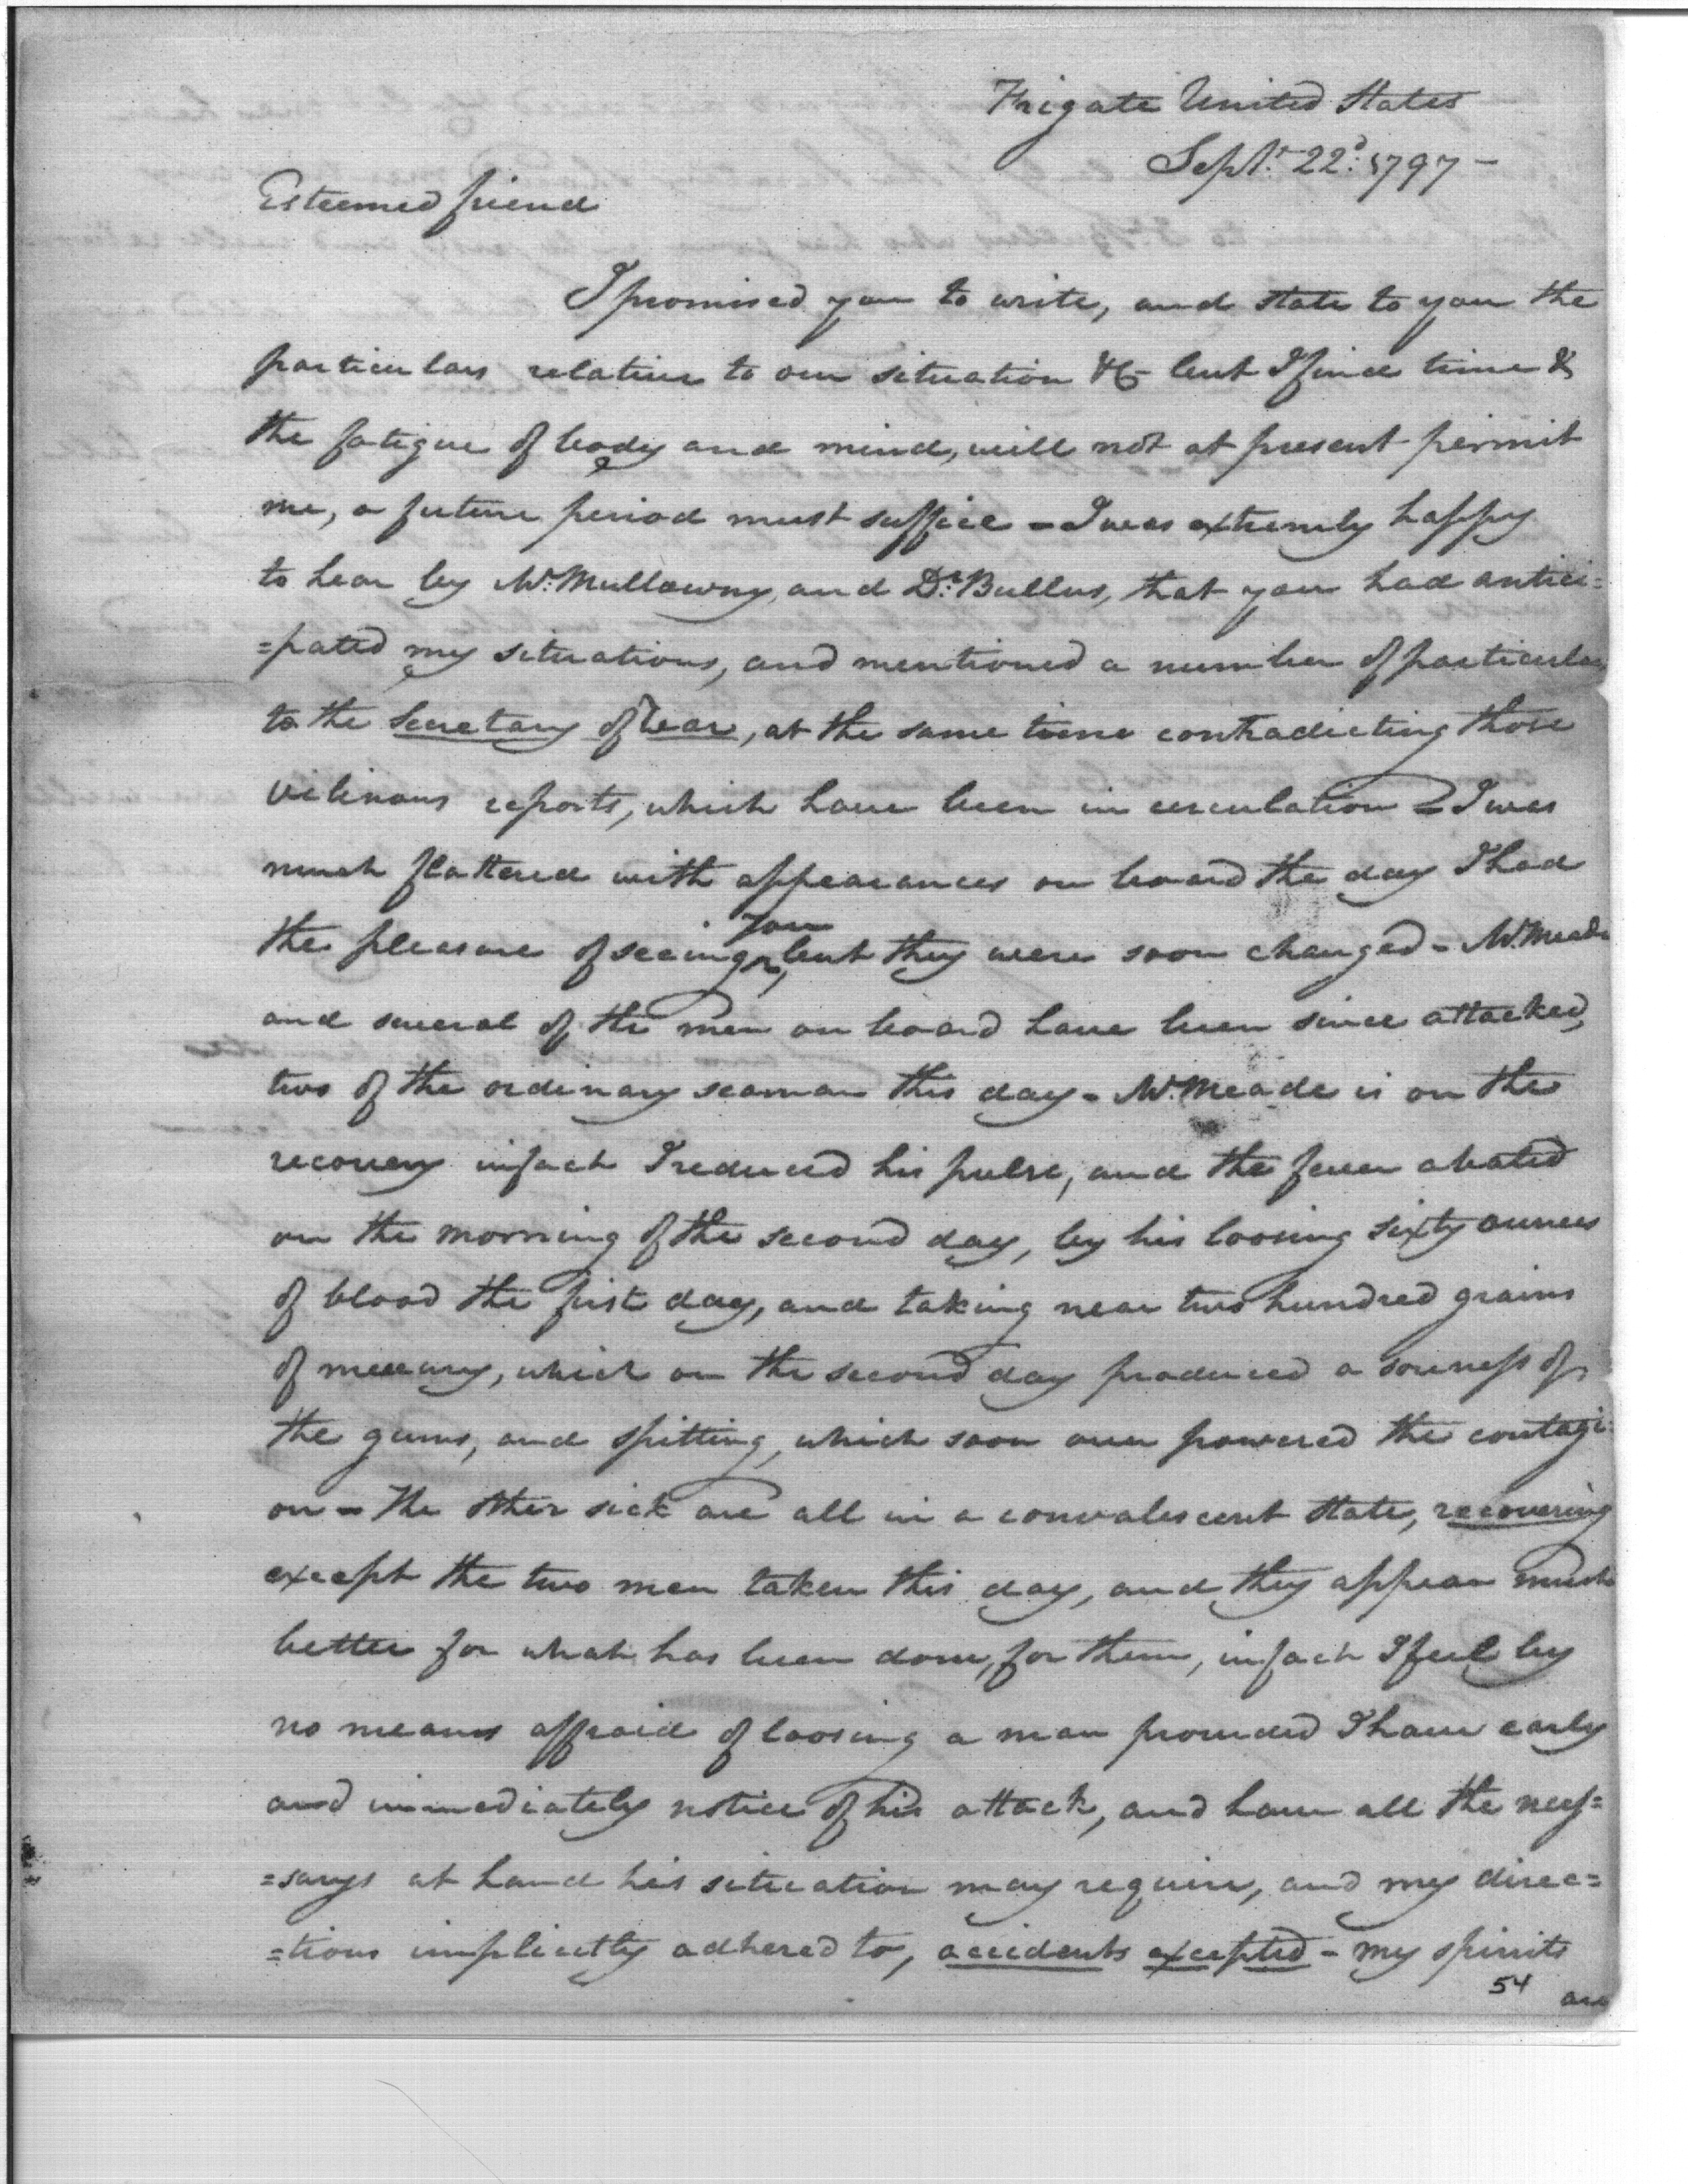 Frigate United States
Septr. 22d: 1797 –
Esteemed friend
I promised you to write, and state to you the
particulars relative to our situation &c– but I find time &
the fatigue of body and mind, will not at present permit
me, a future period must suffice – I was extremly happy
to hear by Mr. Mullowny, and Dr. Bullus, that you had antici=
=pated my situations, and mentioned a number of particulars
to the Secretary of War, at the same time contradicting those
vilinous reports, which have been in circulation – I was
much flattered with appearances on board the day I had
you
the pleasure of seeing, but they were soon changed – Mr. Meade
and several of the men on board have been since attacked,
two of the ordinary seaman this day – Mr. Meade is on the
recovery infact I reduced his pulse, and the fever abated
on the morning of the second day, by his loosing sixty ounces
of blood the first day, and taking near two hundred grains
of mercury, which on the second day produced a soreness of
the gums, and spitting, which soon over powered the contagi=
on – The other sick are all in a convalescent state, recovering
except the two men taken this day, and they appear much
better for what has been done, for them, infact I feel by
no means affraid of loosing a man provided I have early
and immediately notice of his attack, and have all the neces=
=sarys at hand his situation may require, and my direc=
=tions implicitly adhered to, accidents excepted – my spirits
54 are